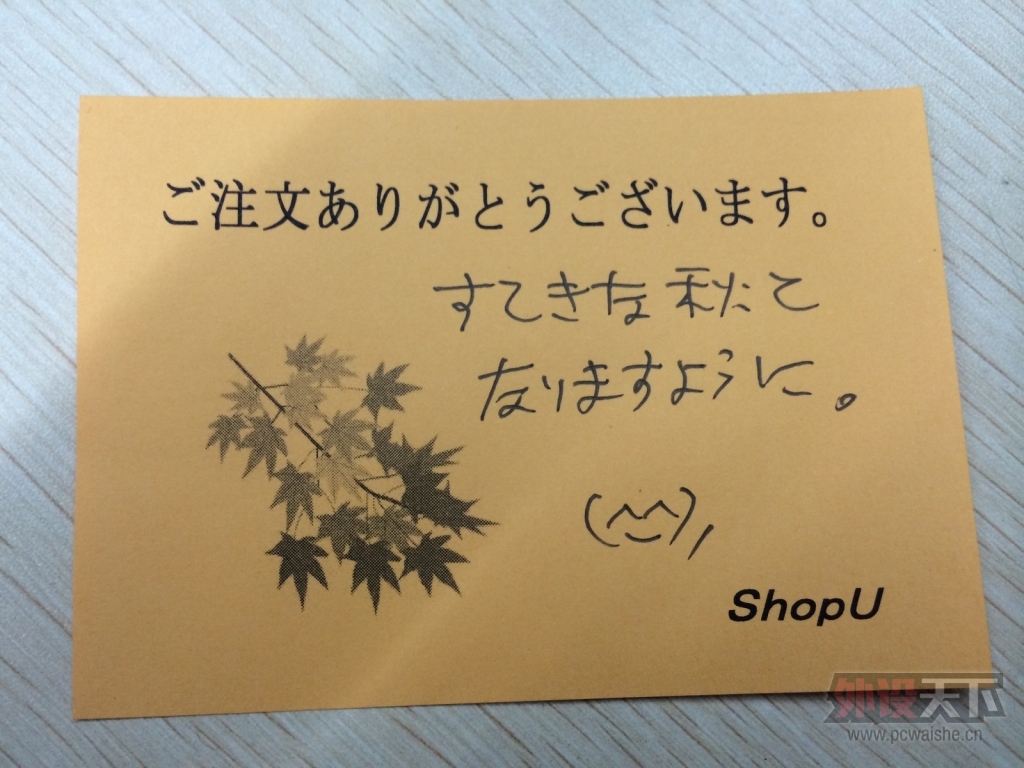 ご注文ありがとうございます。
すてきな秋と
なりますように。
(^^),
ShopU
外设天下
www.pcwaishe.cn